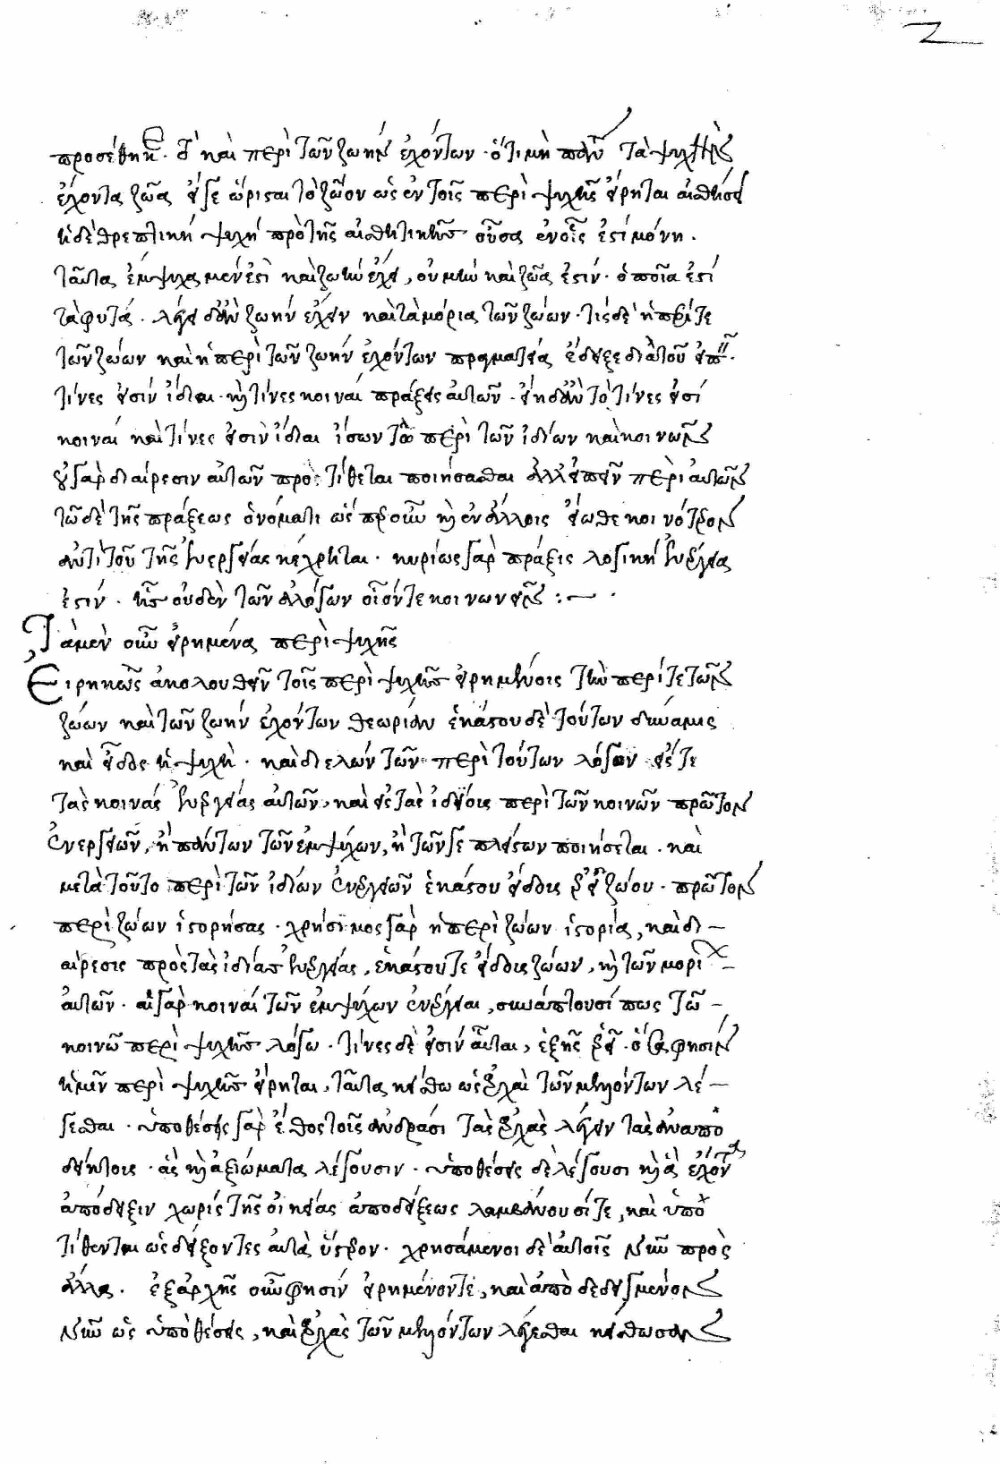 2
προσέθηκε. τὸ καὶ περὶ τῶν ζωὴν ἐχόντων. ὅτι μὴ πᾶν τὰ ψυχὴν
ἔχοντα ζῶα εἴγε ὥρισται τὸ ζῶον ὡς ἐν τοῖς περὶ ψυχῆς εἴρηται αἰσθήσει
ἡ δὲ θρεπτικὴ ψυχὴ πρὸ τῆς αἰσθητικῆς οὖσα ἐν οἷς ἐστὶ μόνη.
ταῦτα ἔμψυχα μέν ἐστι καὶ ζωὴν ἔχει, οὐ μὴν καὶ ζῶα ἐστίν. ὁποῖα ἐστὶ
τὰ φυτά. λέγει δ' ἂν ζωὴν ἔχειν καὶ τὰ μόρια τῶν ζώων. τίς δὲ ἡ περί τε
τῶν ζώων καὶ ἡ περὶ τῶν ζωὴν ἐχόντων πραγματεία ἔδειξε διὰ τοῦ εἰπεῖν.
τίνες εἰσὶν ἴδιαι. καὶ τίνες κοιναὶ πράξεις αὐτῶν. εἴη δ' ἂν τὸ τίνες εἰσὶ
κοιναὶ καὶ τίνες εἰσὶν ἴδιαι ἴσων τῶ περὶ τῶν ἰδίων καὶ κοινῶν
οὐ γὰρ διαίρεσιν αὐτῶν προτίθεται ποιήσασθαι ἀλλ' εἰπεῖν περὶ αὐτῶν
τῶ δὲ τῆς πράξεως ὀνόματι ὡς καὶ ἐν ἄλλοις εἴωθε κοινότερον
ἀντὶ τοῦ τῆς ἐνεργείας κέχρηται. κυρίως γὰρ πράξις λογικὴ ἐνέργεια
ἐστίν. ἧς οὐδὲν τῶν ἀλόγων οἷόν τε κοινωνεῖν :~ .
Τὰ μὲν οὖν εἰρημένα περὶ ψυχῆς
Εἰρηκὼς ἀκολουθεῖν τοῖς περὶ ψυχῆς εἰρημένοις τὴν περί τε τῶν
ζώων καὶ τῶν ζωὴν ἐχόντων θεωρίαν ἑκάστου δὲ τούτων δύναμις
καὶ εἶδος ἡ ψυχή. καὶ διελὼν τῶν περὶ τούτων λόγον εἴς τε
τὰς κοινὰς ἐνεργείας αὐτῶν, καὶ εἰς τὰς ἰδίους περὶ τῶν κοινῶν πρῶτον
ἐνεργειῶν, ἢ πάντων τῶν ἐμψύχων, ἢ τῶν γε πλείστων ποιήσεται. καὶ
μετὰ τοῦτο περὶ τῶν ἰδίων ἐνεργειῶν ἑκάστου εἴδους ἐρεῖ ζώου. πρῶτον
περὶ ζώων ἱστορήσας. χρήσιμος γὰρ ἡ περὶ ζώων ἱστορία, καὶ δι-
αίρεσις πρὸς τὰς ἰδίας ἐνεργείας, ἑκάστου τε εἴδους ζώων, καὶ τῶν μορίων
αὐτῶν. αἱ γὰρ κοιναὶ τῶν ἐμψύχων ἐνέργειαι, συνάπτουσί πως τῶ
κοινῶ περὶ ψυχῆς λόγω. τίνες δὲ εἰσὶν αὗται, ἑξῆς ἐρεῖ. ὅσα φησὶν
ἡμῖν περὶ ψυχῆς εἴρηται, ταῦτα κείσθω ὡς ἀρχαὶ τῶν μελλόντων λέ-
γεσθαι. ὑποθέσεις γὰρ ἔθος τοῖς ἀνδράσι τὰς ἀρχὰς λέγειν τὰς ἀναπο
δείκτοις. ἃς καὶ ἀξιώματα λέγουσιν. ὑποθέσεις δὲ λέγουσι καὶ ἃ ἔχοντα
ἀπόδειξιν χωρὶς τῆς οἰκείας ἀποδείξεως λαμβάνουσί τε, καὶ ὑπο
τίθενται ὡς δείξοντες αὐτὰ ὕστερον. χρησάμενοι δὲ αὐτοῖς νῦν πρὸς
ἄλλα. ἐξ ἀρχῆς οὖν φησὶν εἰρημένον τε, καὶ ἀποδεδειγμένον
νῦν ὡς ὑποθέσεις, καὶ ἀρχὰς τῶν μελλόντων λέγεσθαι κείσθωσαν